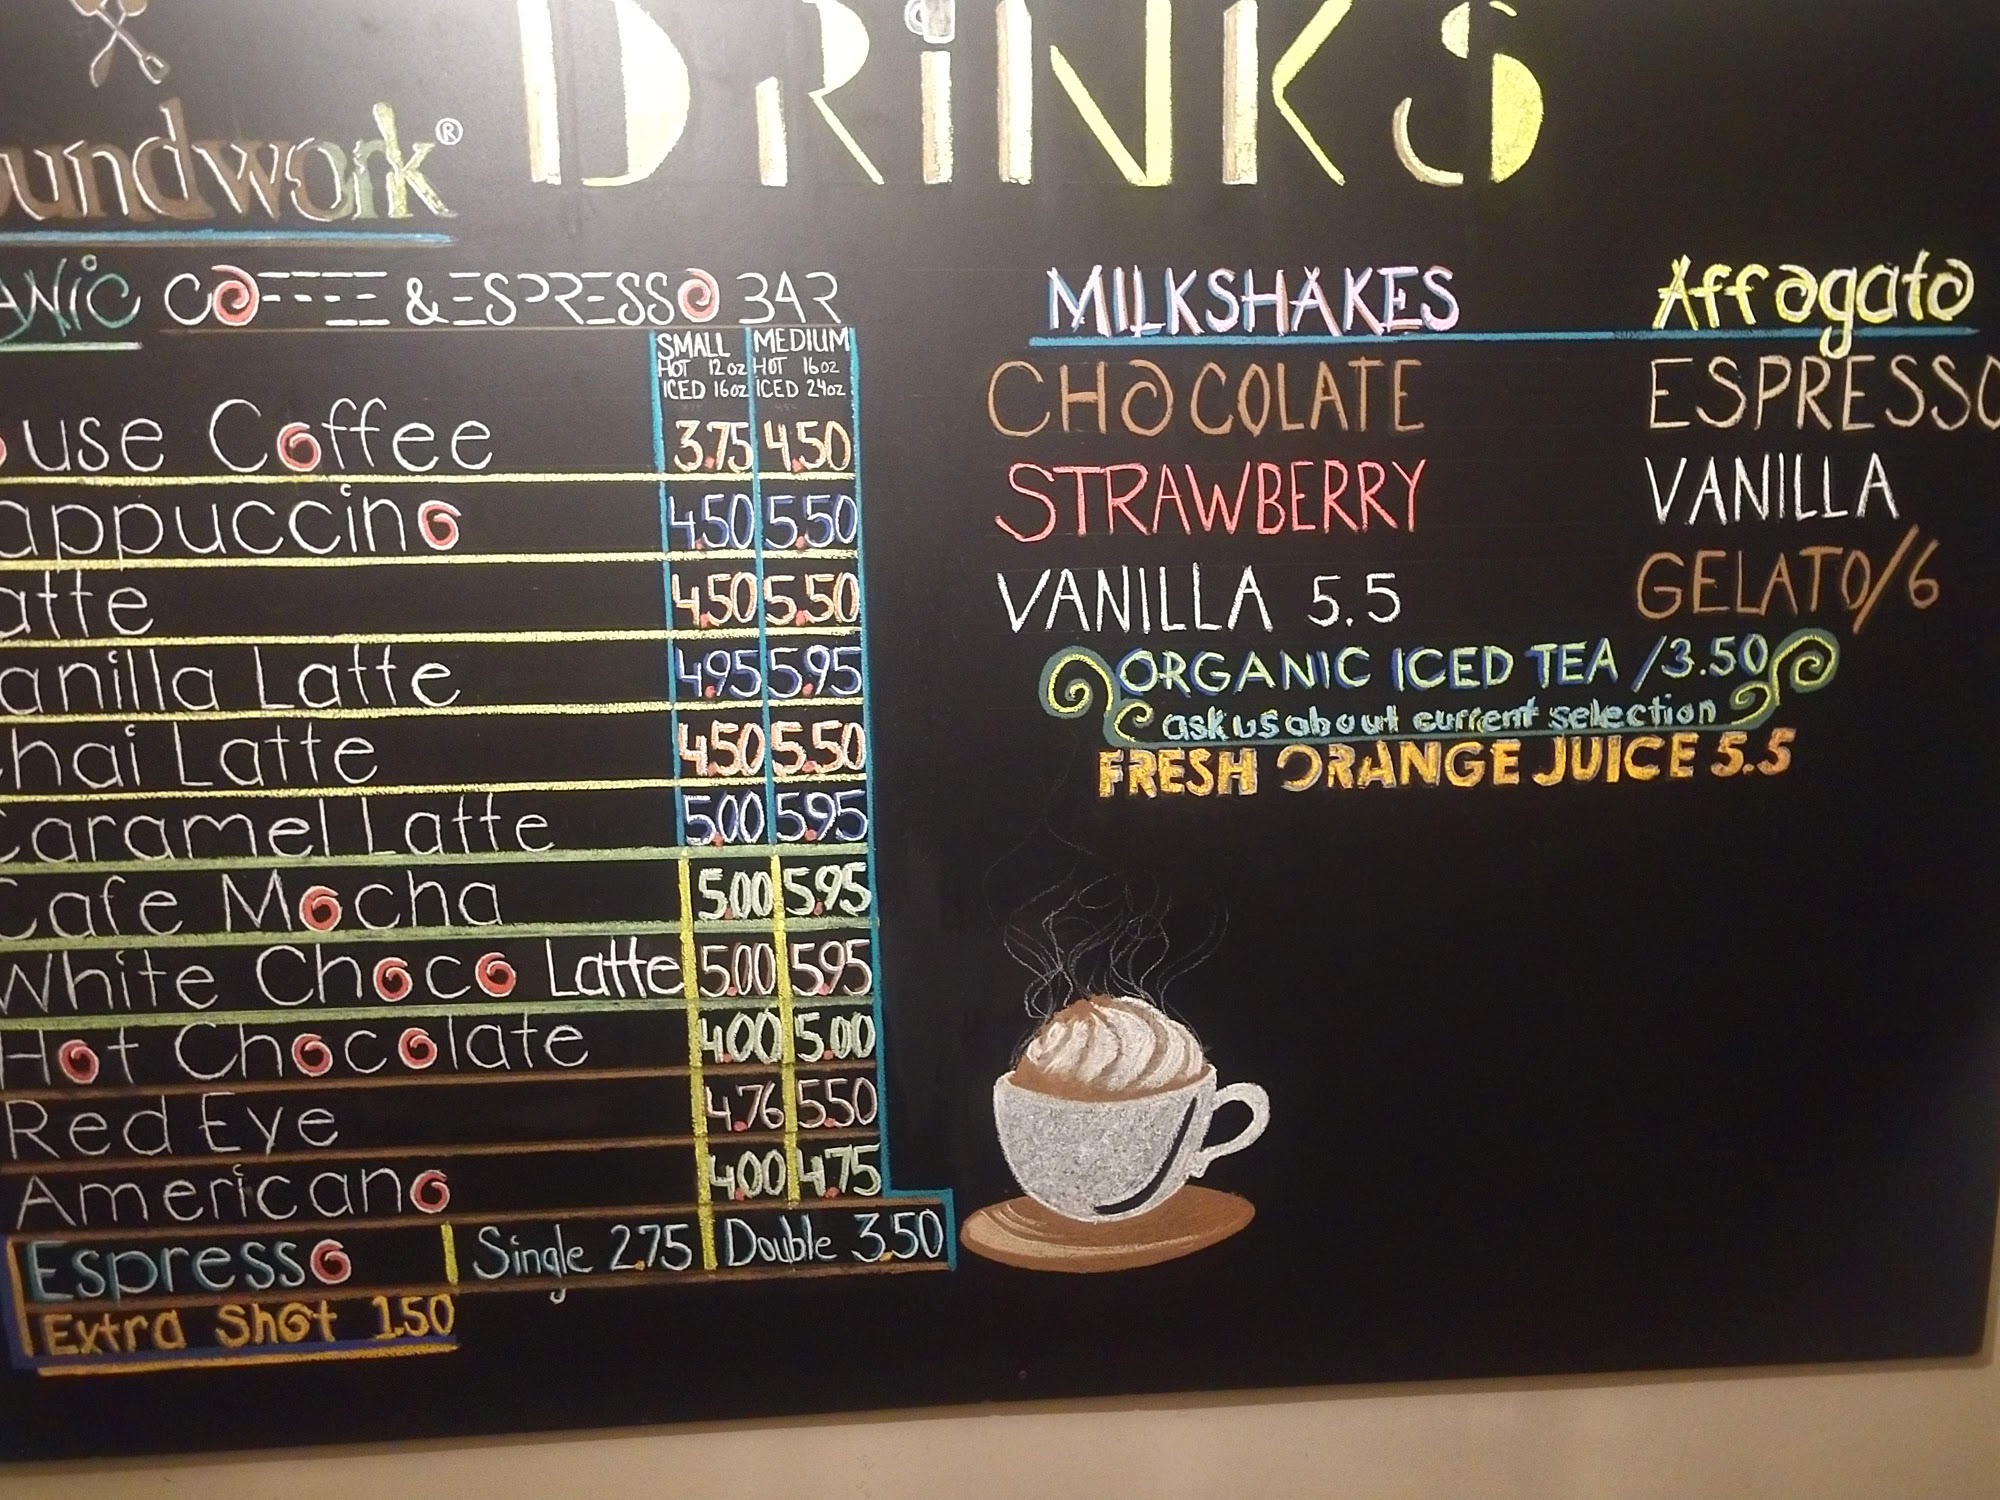 DRiNKS
oundwork®
ANiC COFFEE & ESPRESSO BAR
SMALL MEDIUM
HOT 12oz HOT 16oz
ICED 16oz ICED 24oz
ouse Coffee 3.75 4.50
appuccino 4.50 5.50
atte 4.50 5.50
anilla Latte 4.95 5.95
hai Latte 4.50 5.50
Caramel Latte 5.00 5.95
Cafe Mocha 5.00 5.95
White Choco Latte 5.00 5.95
Hot Chocolate 4.00 5.00
Red Eye 4.76 5.50
Americano 4.00 4.75
Espresso Single 2.75 Double 3.50
Extra Shot 1.50
MILKSHAKES
CHOCOLATE
STRAWBERRY
VANILLA 5.5
Affogato
ESPRESSO
VANILLA
GELATO/6
ORGANIC ICED TEA /3.50
ask us about current selection
FRESH ORANGE JUICE 5.5